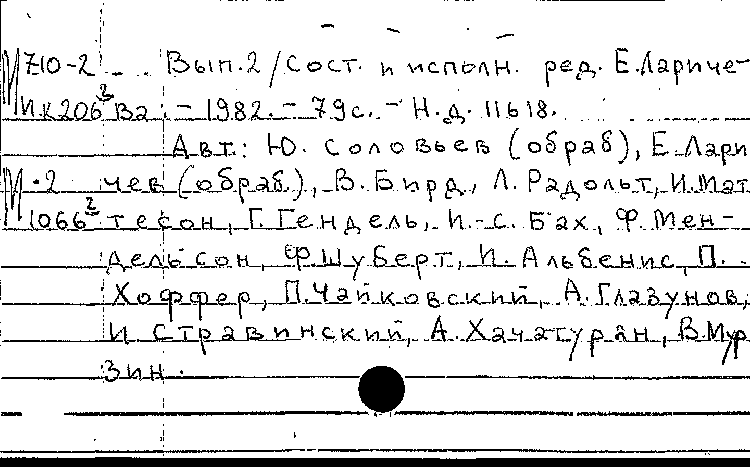 М710-2 Вып.2/Сост. и исполн. ред. Е.Лариче-
И.К206² ва. - 1982. - 79с. - Н.д. 11618.
Авт.: Ю. Соловьев (обраб), Е.Лари
М-2 чев (обраб.), В.Бирд, Л.Радольт, И.Мат
1066² тесон, Г.Гендель, И.-С.Бах, Ф.Мен-
дельсон, Ф.Шуберт, И.Альбенис, П.
Хоффер, П.Чайковский, А.Глазунов,
И Стравинский, А.Хачатурян, В.Мур
зин.